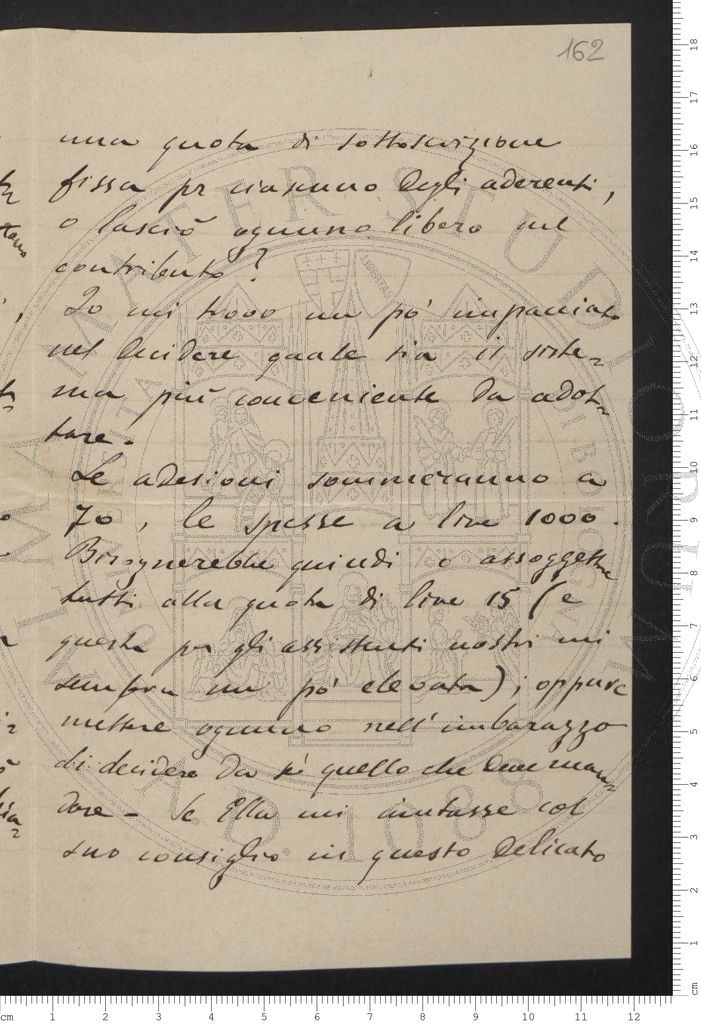 162
una quota di sottoscrizione
fissa pr ciascuno degli aderenti,
o lasciò ognuno libero nel
contributo?
Io mi trovo un pò impacciato
nel decidere quale sia il siste=
ma più conveniente da adot=
tare.
Le adesioni sommeranno a
70, le spese a lire 1000.
Bisognerebbe quindi o assoggettare
tutti alla quota di lire 15 (e
questa pr gli assistenti nostri mi
sembra un pò elevata); oppure
mettere ognuno nell'imbarazzo
di decidere da sè quello che deve man=
dare. Se Ella mi aiutasse col
suo consiglio in questo delicato